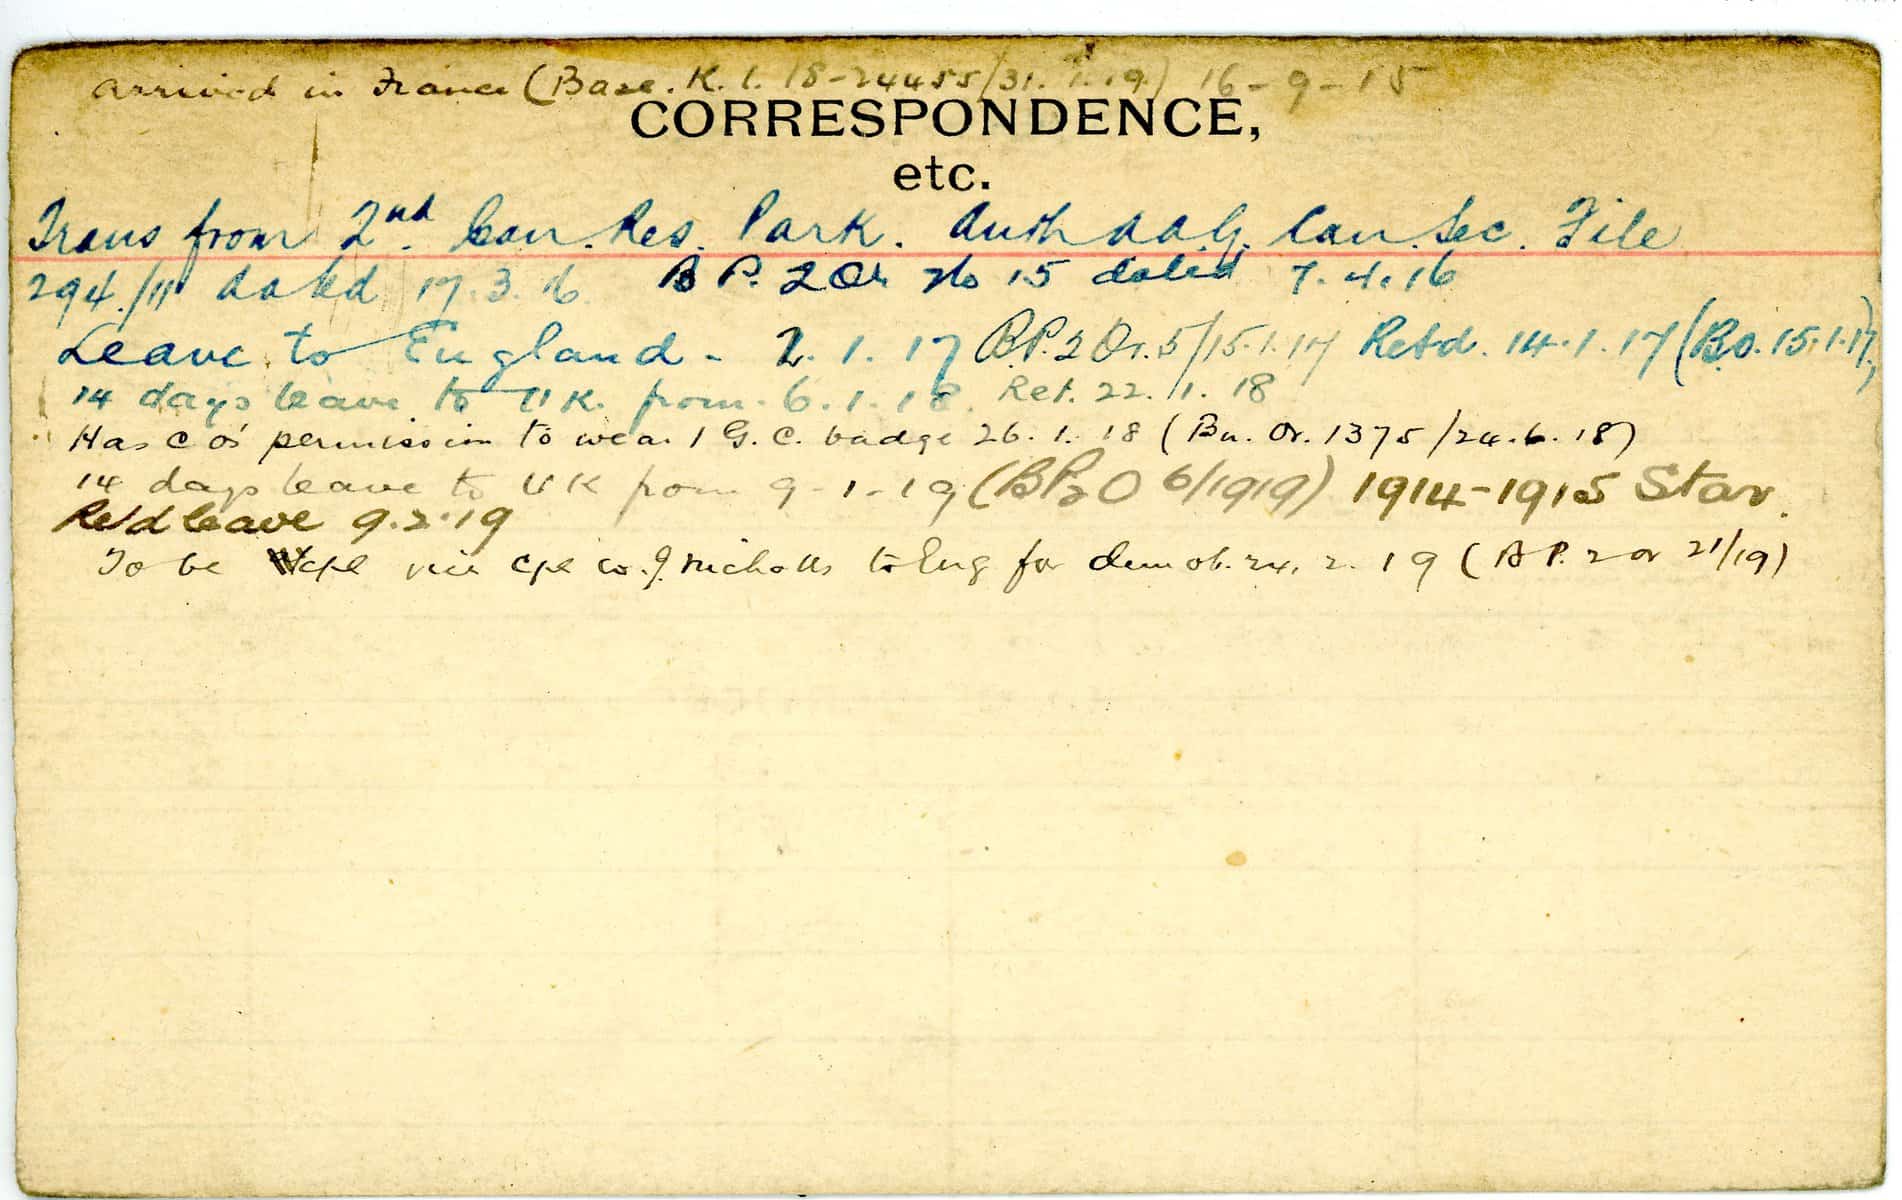 arrived in France (Base. K. 1. 18-24455/31. 1. 19.) 16-9-15
CORRESPONDENCE,
etc.
Trans from 2nd. Can. Res. Park. Auth A.A.G. Can. Sec. File
294./11 dated 17.3.16 B P. 2 Or No 15 dated 7.4.16
Leave to England - 2.1.17 B.P. 2 Or. 5/15.1.17 Retd. 14.1.17 (B.O. 15.1.17)
14 days leave to UK. from 6.1.18. Ret. 22.1.18
Has C O's permission to wear 1 G. C. badge 26.1.18 (Bn. Or. 1375/24.6.18)
14 days leave to UK from 9-1-19 (BP2O 6/1919) 1914-1915 Star.
Re'd leave 9.2.19
To be cpl vice cpl W. J. Nicholls to Eng for demob. 24.2.19 (B P. 2 or 21/19)